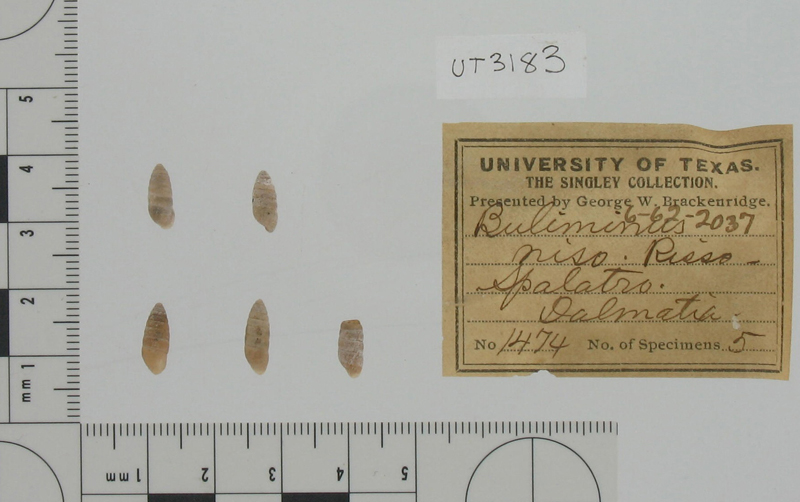 UT3183
UNIVERSITY OF TEXAS.
THE SINGLEY COLLECTION.
Presented by George W. Brackenridge.
6-62-2037
Buliminus
niso. Risso -
Spalatro.
Dalmatia.
No 1474 No. of Specimens 5
5
4
3
2
mm 1
1 mm
2
3
4
5